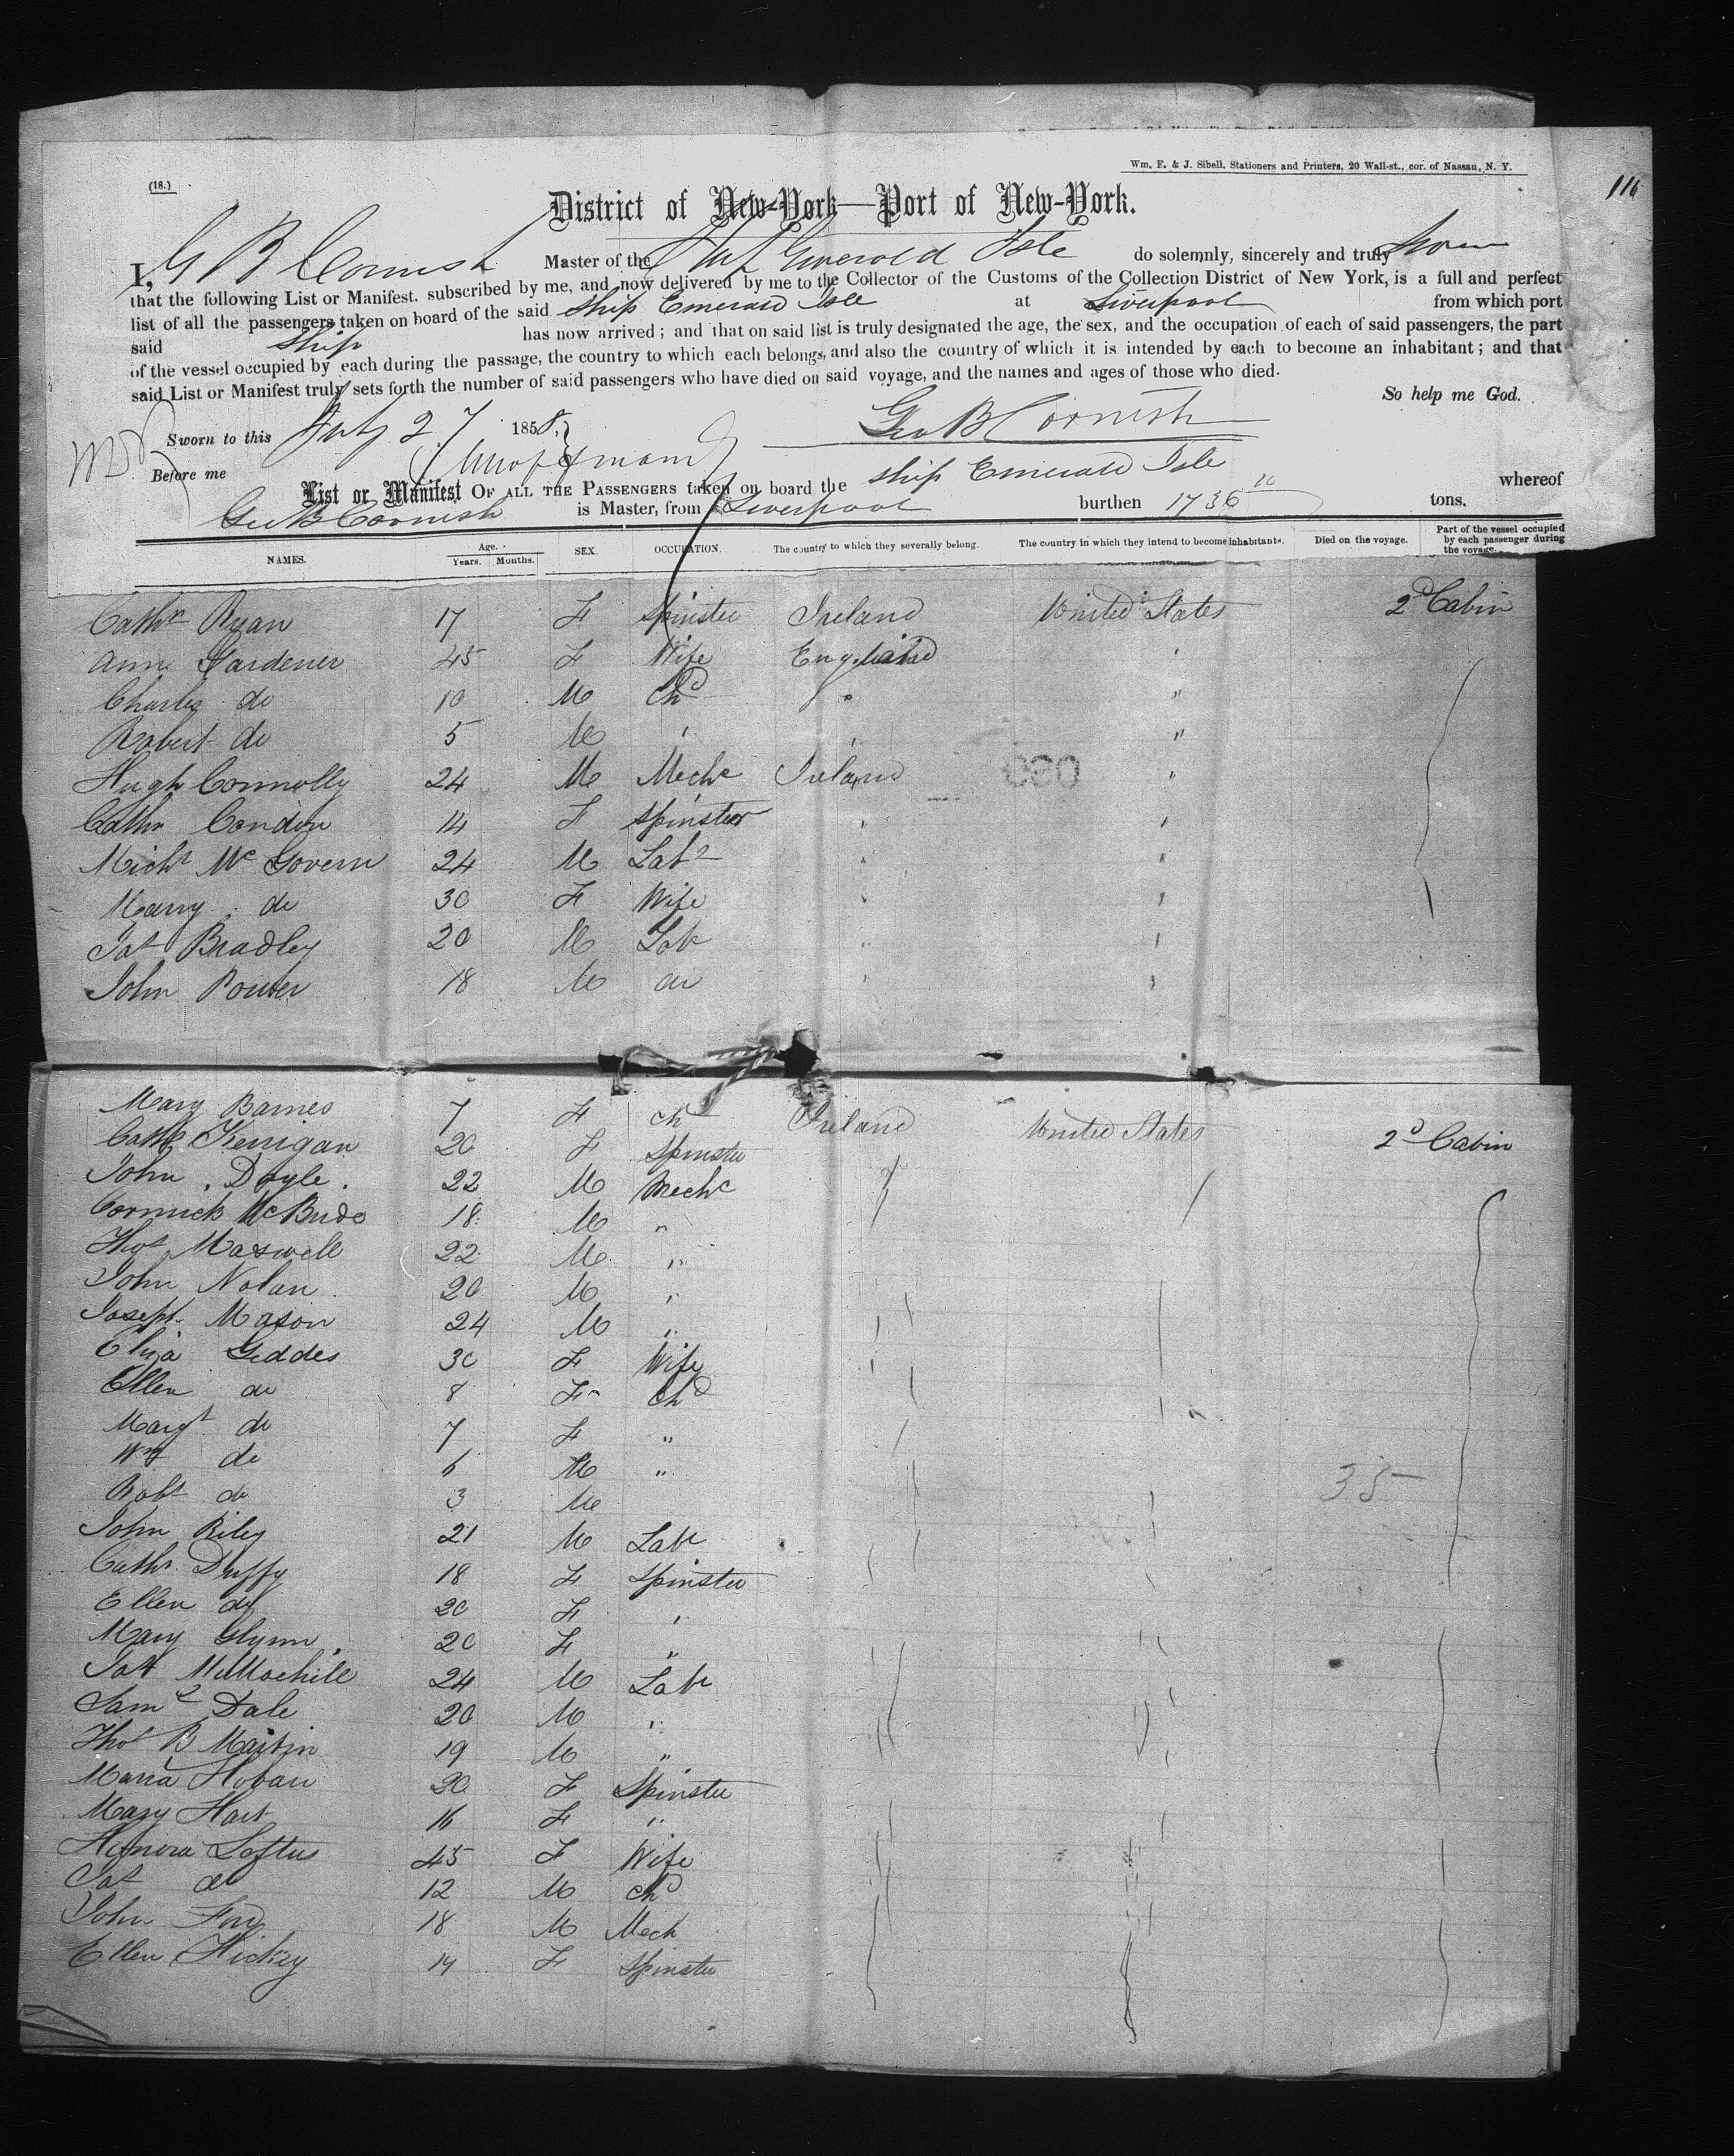 Wm. F. & J. Sibell, Stationers and Printers, 20 Wall-st., cor. of Nassau, N. Y.
(18.)
116
District of New-York—Port of New-York.
I, G B Cornish Master of the Ship Emerald Isle do solemnly, sincerely and truly swear
that the following List or Manifest, subscribed by me, and now delivered by me to the Collector of the Customs of the Collection District of New York, is a full and perfect
list of all the passengers taken on board of the said Ship Emerald Isle at Liverpool from which port
said Ship has now arrived; and that on said list is truly designated the age, the sex, and the occupation of each of said passengers, the part
of the vessel occupied by each during the passage, the country to which each belongs, and also the country of which it is intended by each to become an inhabitant; and that
said List or Manifest truly sets forth the number of said passengers who have died on said voyage, and the names and ages of those who died.
So help me God.
Sworn to this July 27 1858. Geo B Cornish
Before me
List or Manifest OF ALL THE PASSENGERS taken on board the ship Emerald Isle whereof
Geo B Cornish is Master, from Liverpool burthen 1736 tons.
NAMES. Age. Years. Months. SEX. OCCUPATION. The country to which they severally belong. The country in which they intend to become inhabitants. Died on the voyage. Part of the vessel occupied by each passenger during the voyage.
Cathn Ryan 17 F Spinster Ireland United States 2d Cabin
Ann Gardener 45 F Wife England "
Charles do 10 M Chd " "
Robert do 5 M " " "
Hugh Connolly 24 M Mechc Ireland "
090
Cathn Condon 14 F Spinster " "
Michl Mc Govern 24 M Labr " "
Marry do 30 F Wife " "
Pat Bradley 20 M Labr " "
John Power 18 M do " "
Mary Barnes 7 F Ch Ireland United States 2d Cabin
Cathe Kerrigan 20 F Spinster
John Doyle 22 M Mechc
Cormick McBride 18 M "
Thos Maxwell 22 M "
John Nolan 20 M "
Joseph Mason 24 M "
Eliza Geddes 30 F Wife
Ellen do 8 F Chd
Margt do 7 F "
Wm do 6 M "
35
Robt do 3 M
John Riley 21 M Labr
Cathn Duffy 18 F Spinster
Ellen do 20 F "
Mary Glynn 20 F "
Pat 24 M Labr
Saml Dale 20 M "
Thos B Martin 19 M "
Maria Hoban 20 F Spinster
Mary Hart 16 F "
Honora Loftus 45 F Wife
Pat do 12 M Chd
John Foy 18 M Mech
Ellen Hickey 14 F Spinster